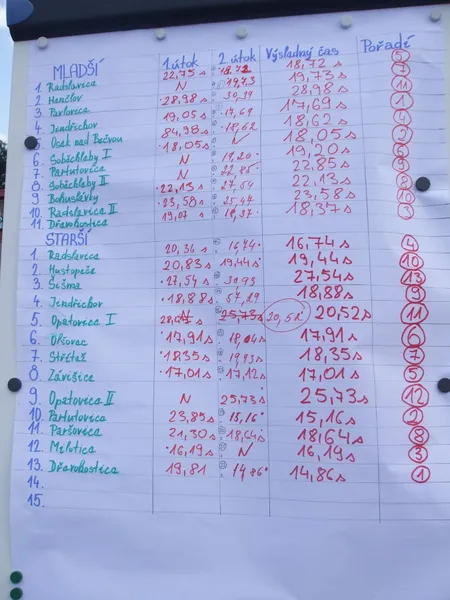 1.útok 2.útok Výsledný čas Pořadí
MLADŠÍ
1. Radslavice 22,75s 18.72 18,72 s 5
2. Henčlov N 19,73 19,73 s 7
3. Pavlovice 28,98s 30,39 28,98 s 11
4. Jindřichov 19,05s 17,69 17,69 s 1
5. Osek nad Bečvou 84,98s 18,62 18,62 s 4
6. Soběchleby I 18,05s N 18,05 s 2
7. Partutovice N 19,20 19,20 s
8. Soběchleby II N 22,85 22,85 s
9 Bohuslávky 22,13s 22,13 s 8
10. Radslavice II 23,58s 25,47 23,58 s 10
11. Dřevohostice 19,07 s 18,37 18,37 s 3
STARŠÍ
1. Radslavice 20,36 s 16,74 16,74 s 4
2. Hustopeče 20,83 s 19,44s 19,44 s 10
3. Šišma 27,54 s 30,93 27,54 s 13
4. Jindřichov 18,88s 18,88 s 9
5. Opatovice I N 25,73s 20,52 20,52 s 11
6. Olšovec 17,91s 18,04s 17,91 s 6
7. Střítež 18,35s 19,93s 18,35 s 7
8. Závišice 17,01s 17,12s 17,01 s 5
9. Opatovice II N 25,73s 25,73 s 12
10. Partutovice 23,85s 15,16 15,16 s 2
11. Paršovice 21,30s 18,64 18,64 s 8
12. Milotice 16,19s N 16,19 s 3
13. Dřevohostice 19,81 14,86 14,86 s 1
14.
15.